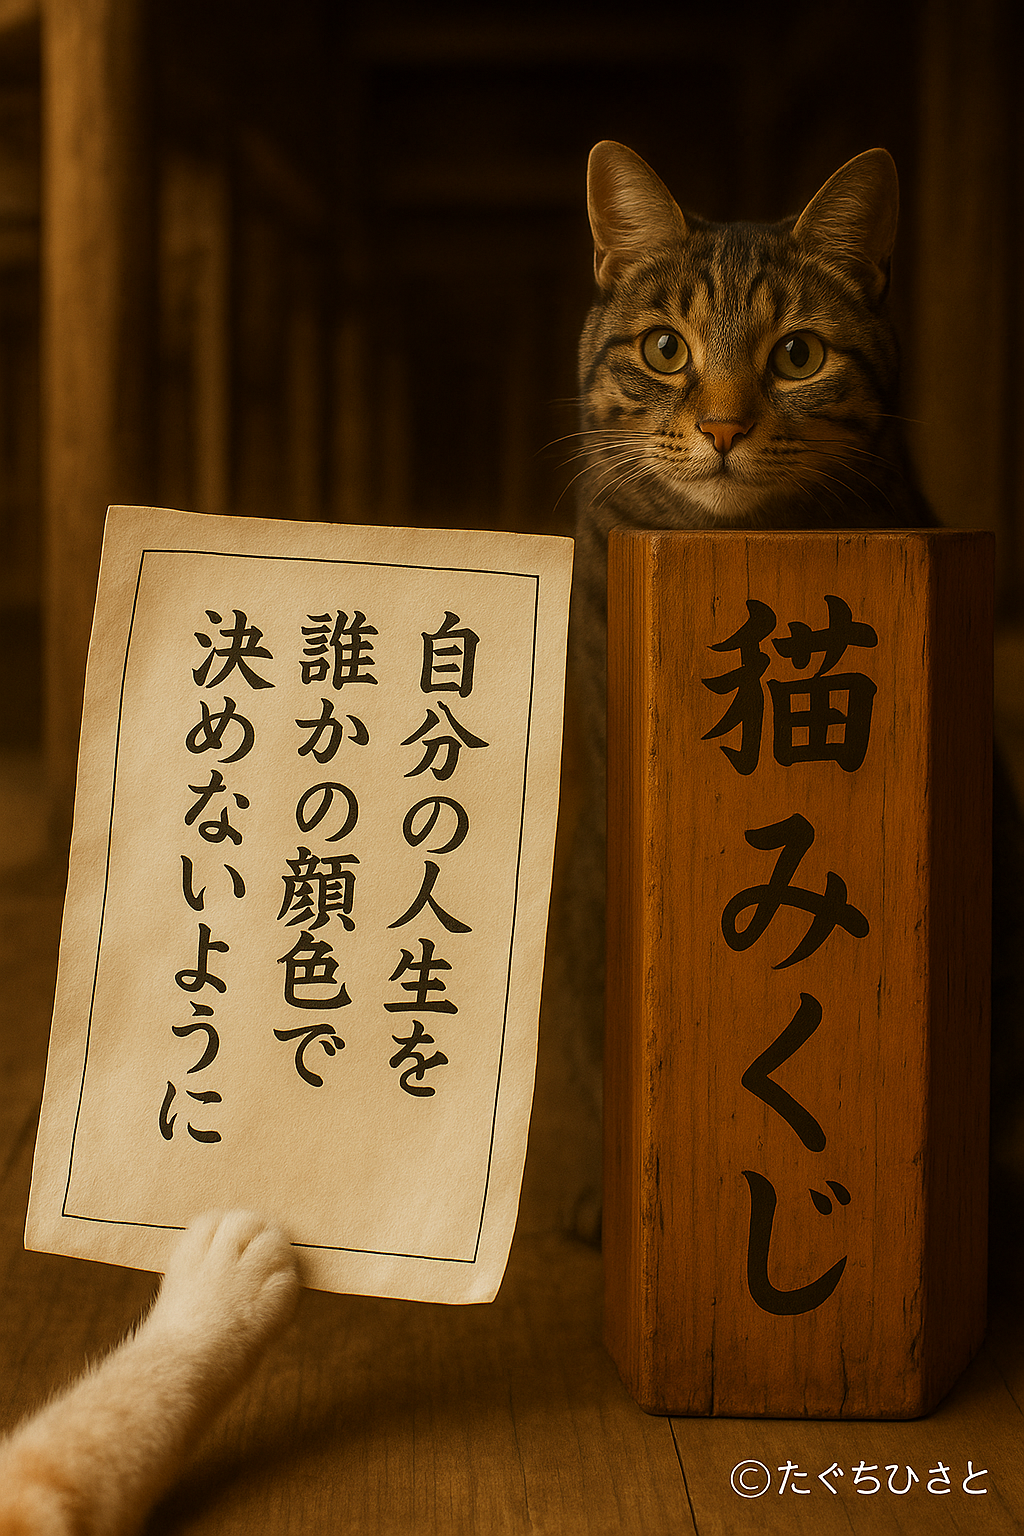 自分の人生を
誰かの顔色で
決めないように
猫みくじ
©たぐちひさと